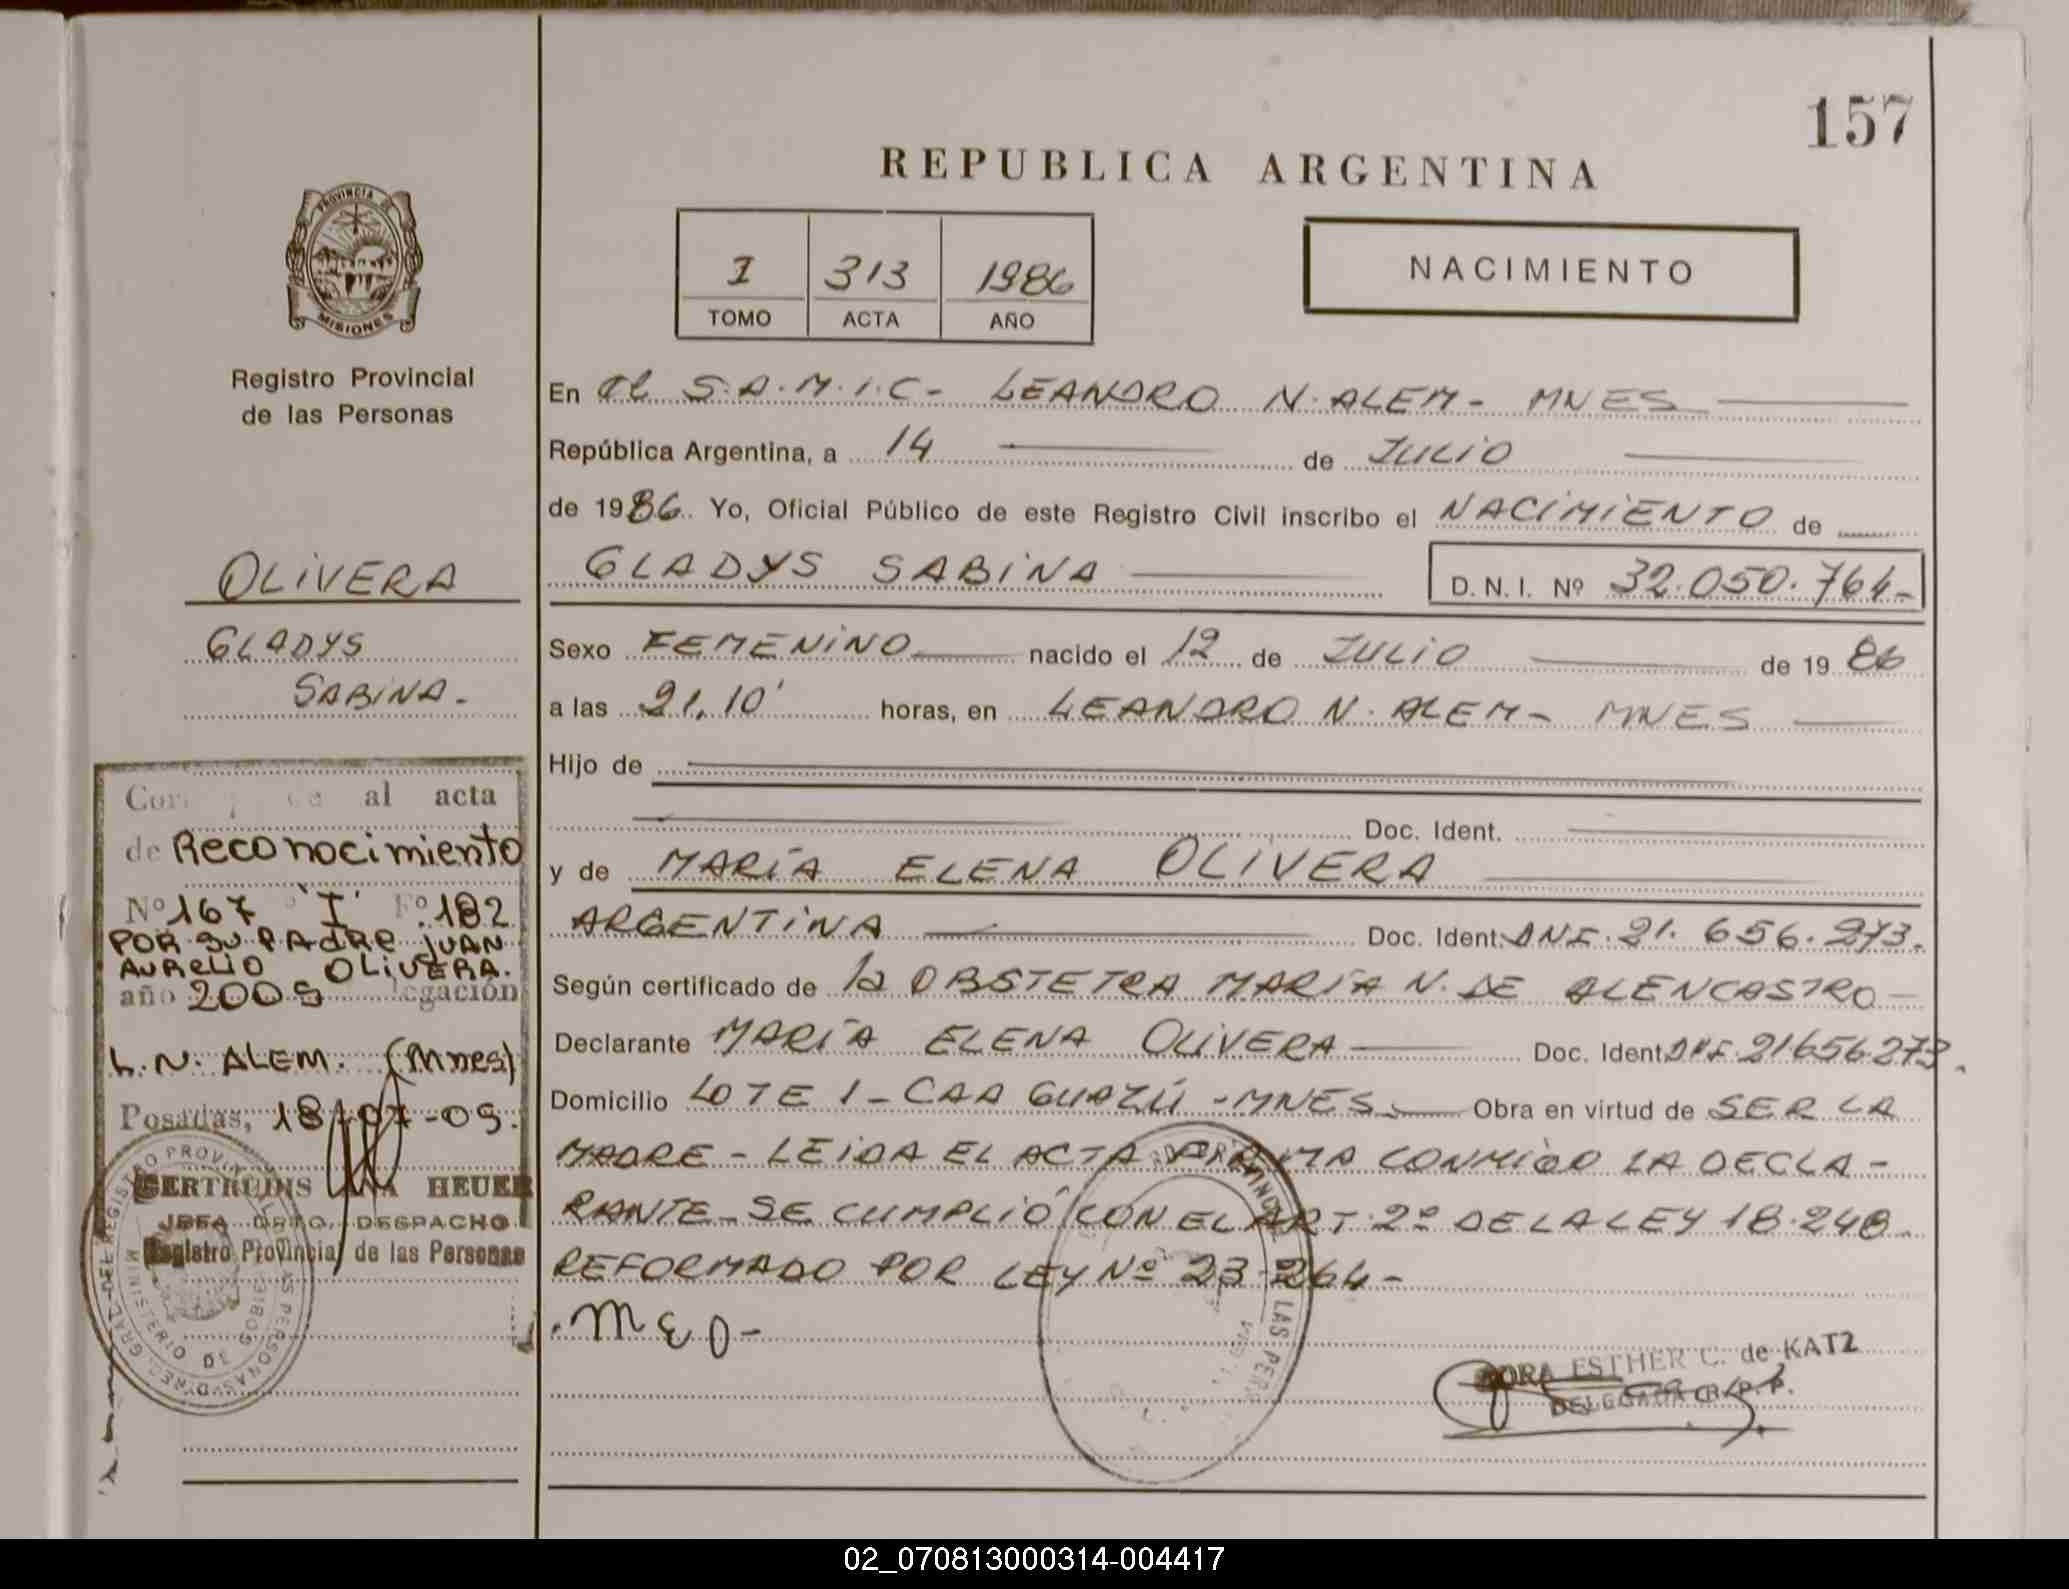 157
REPUBLICA ARGENTINA
PROVINCIA DE
MISIONES
I 313 1986
TOMO ACTA AÑO
NACIMIENTO
Registro Provincial
de las Personas
OLIVERA
GLADYS
SABINA.-
Cor al acta
de Reconocimiento
Nº 167 "I" Fº 182
POR SU PADRE JUAN
AURELIO OLIVERA.
año 2009 legación
L.N. ALEM. (Mnes)
Posadas, 18-07-09.
GERTRUDIS HEUER
JEFA DPTO. DESPACHO
Registro Provincial de las Personas
En el S.A.M.I.C- LEANDRO N. ALEM- MNES
República Argentina, a 14 de JULIO
de 1986. Yo, Oficial Público de este Registro Civil inscribo el NACIMIENTO de
GLADYS SABINA D.N.I. Nº 32.050.764-
Sexo FEMENINO nacido el 12 de JULIO de 1986
a las 21,10' horas, en LEANDRO N. ALEM- MNES
Hijo de
Doc. Ident.
y de MARÍA ELENA OLIVERA
ARGENTINA Doc. Ident. DNI. 21.656.273.
Según certificado de la OBSTETRA MARÍA N. DE ALENCASTRO-
Declarante MARÍA ELENA OLIVERA Doc. Ident. DNI 21656273.
Domicilio LOTE 1- CAA GUAZÚ -MNES Obra en virtud de SER LA
MADRE - LEIDA EL ACTA FIRMA CONMIGO LA DECLA-
RANTE- SE CUMPLIÓ CON EL ART. 2º DE LA LEY 18.248
REFORMADO POR LEY Nº 23.264-
MEO-
DORA ESTHER C. de KATZ
DELEGADA R.P.P.
02_070813000314-004417